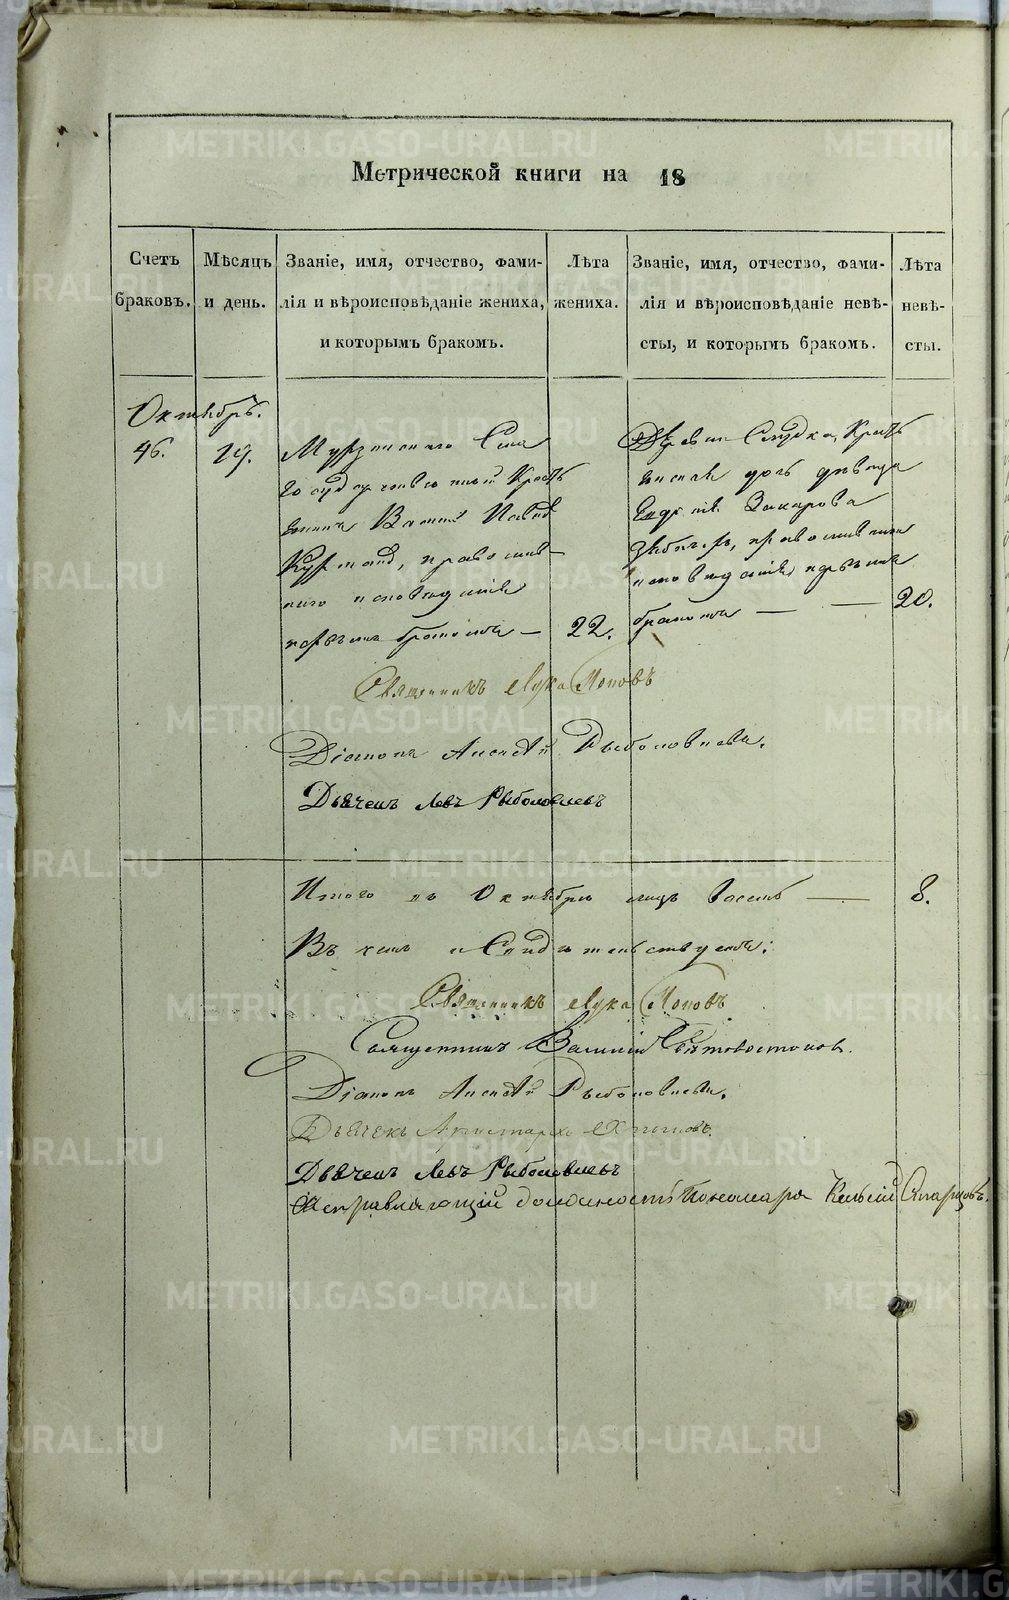 Метрической книги на 18
Счетъ браковъ.
Мѣсяцъ и день.
Званіе, имя, отчество, фами-
лія и вѣроисповѣданіе жениха,
и которымъ бракомъ.
Лѣта жениха.
Званіе, имя, отчество, фами-
лія и вѣроисповѣданіе невѣ-
сты, и которымъ бракомъ.
Лѣта невѣ-
сты.
Октябрь.
46.
29.
Мурзинскаго Села
государственный Кресть
янинъ
православ
наго исповеданія
первымъ бракомъ —
22.
Деревни Слудки, Кресть
янская дочь девица
Захарова
православнаго
исповеданія, первымъ
бракомъ — —
20.
Священникъ Лука Поповъ
Діаконъ Алексѣй Рыболовлевъ.
Дьячекъ Левъ Рыболовлевъ
Итого въ Октябрѣ лицъ восемь —
8.
Въ чемъ и Свидѣтельствуемъ:
Священникъ Лука Поповъ
Священникъ Василий
Діаконъ Алексѣй Рыболовлевъ.
Дьячекъ Аристархъ
Дьячекъ Левъ Рыболовлевъ
Исправляющій должность Пономаря Старцовъ.
METRIKI.GASO-URAL.RU